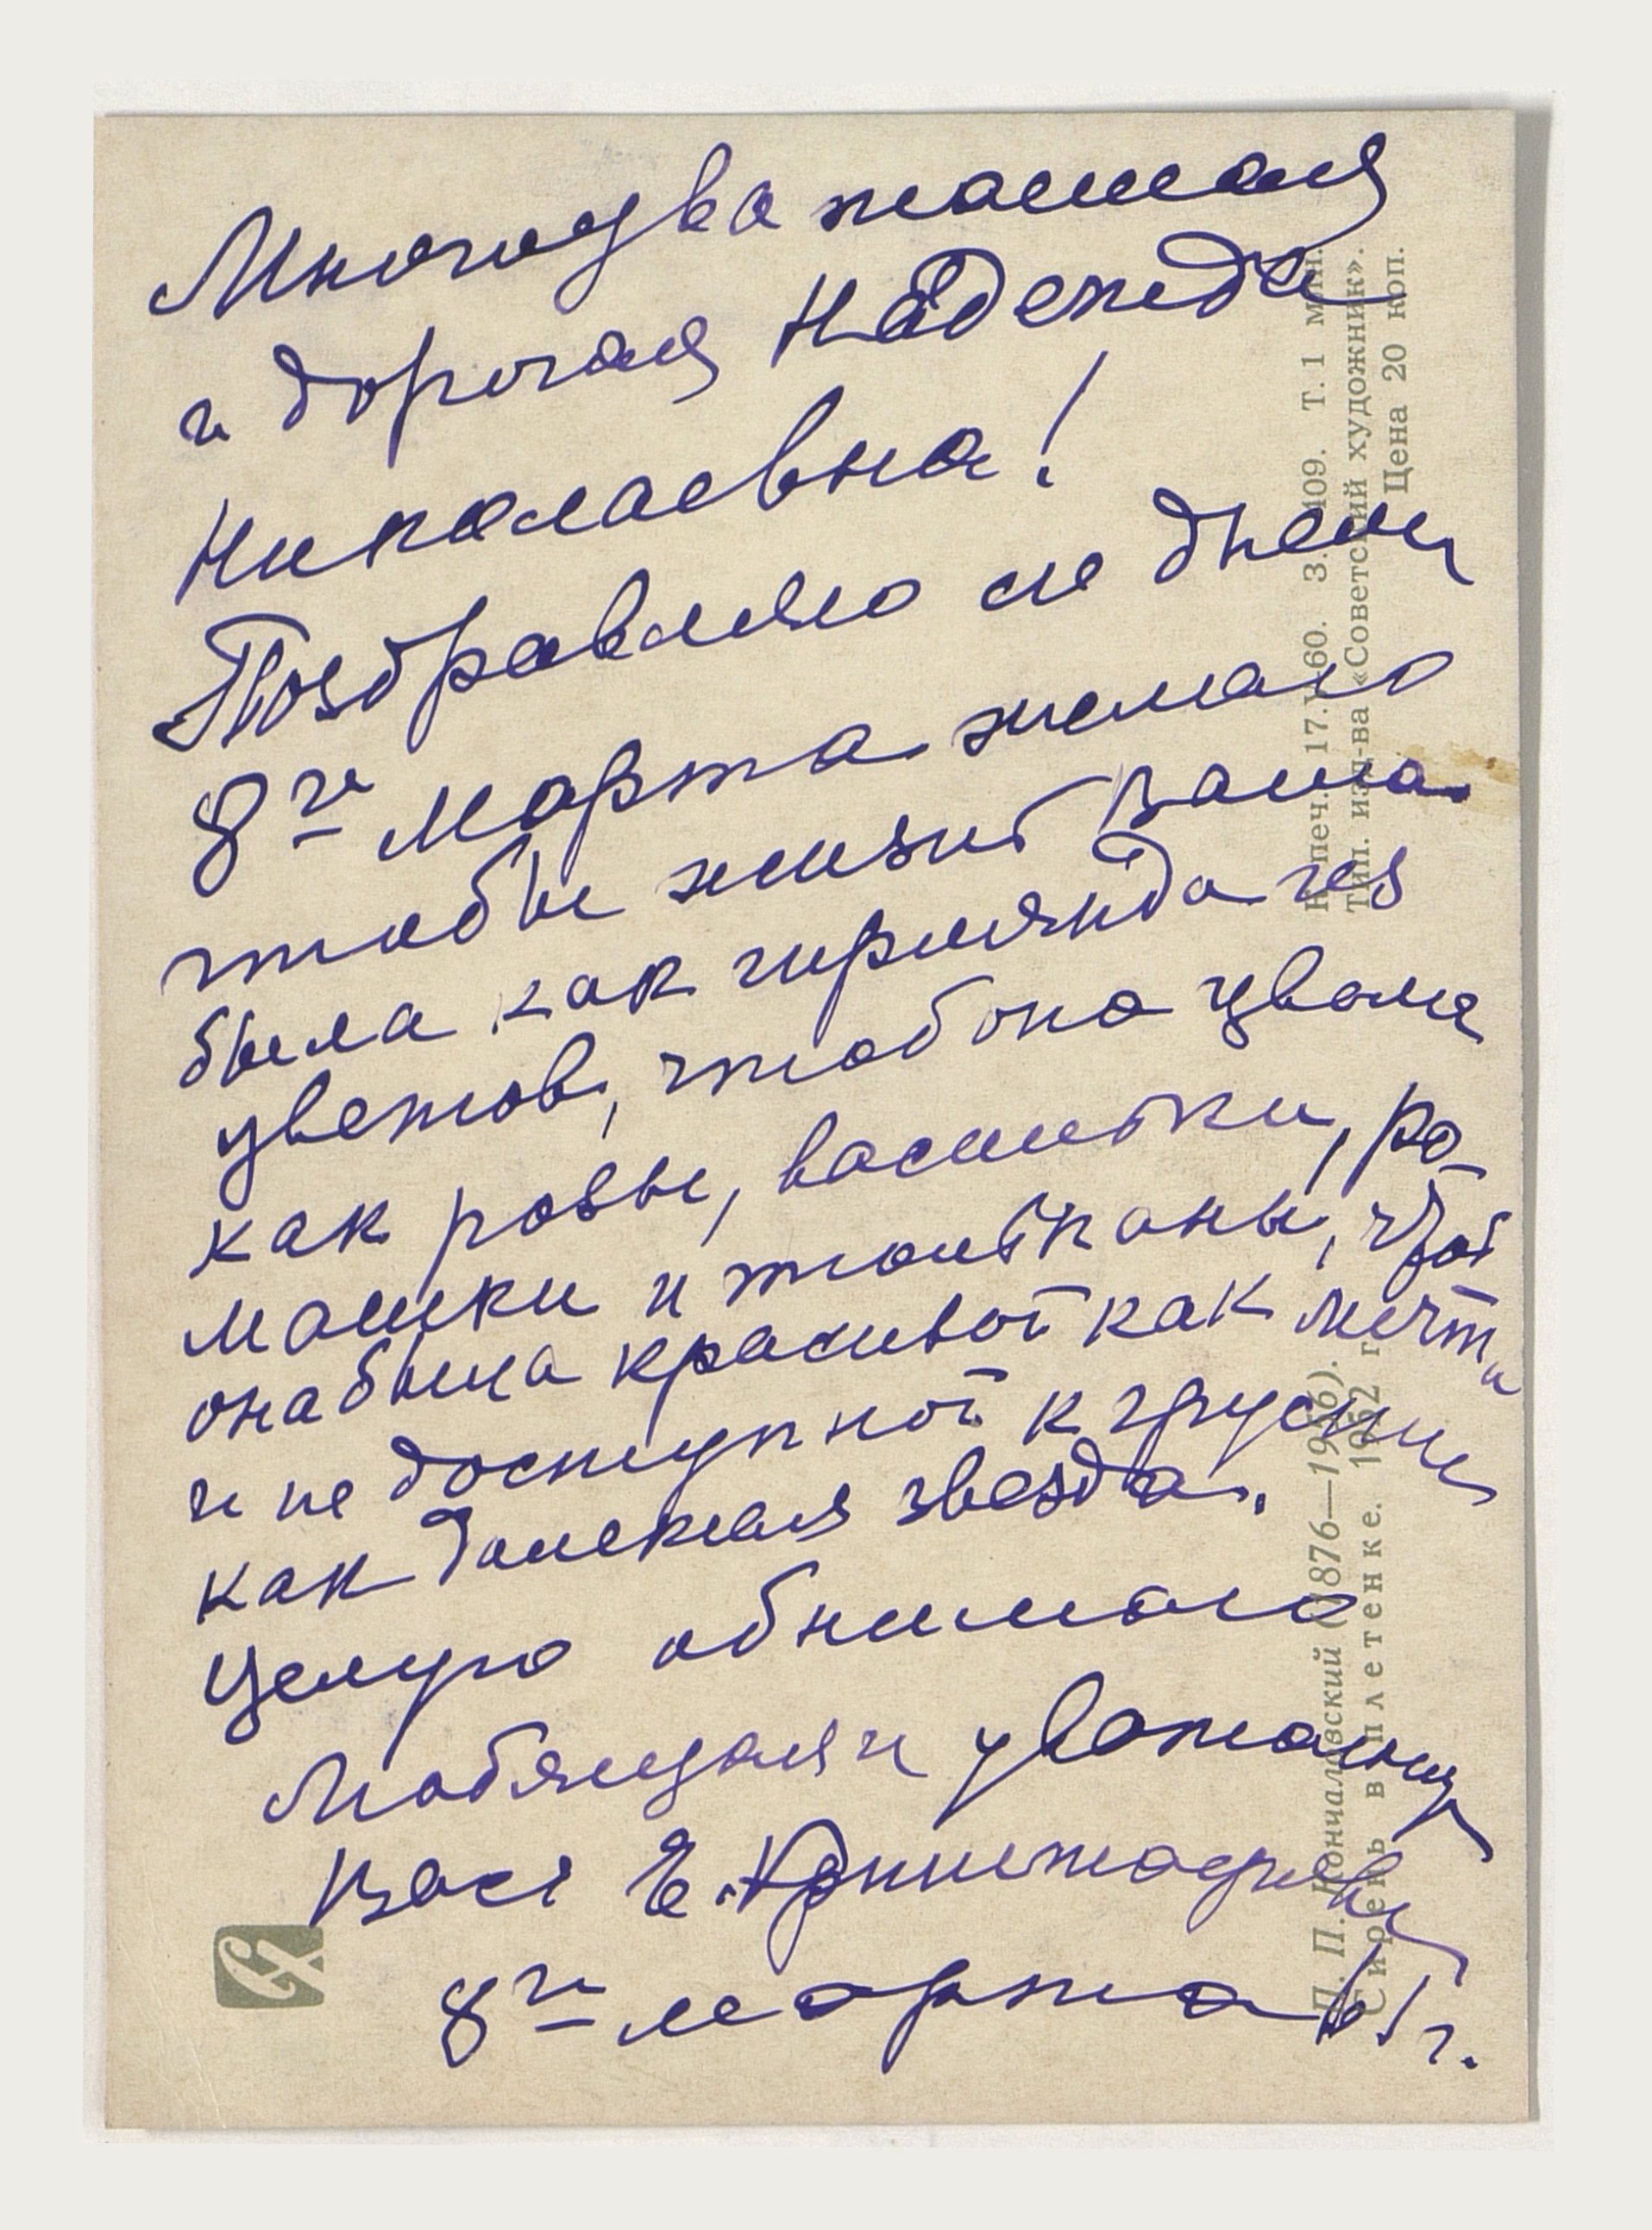 Многоуважаемая
и дорогая Надежда
Николаевна!
Поздравляю со днем
8го Марта желаю
чтобы жизнь Ваша
была как гирлянда из
цветов, чтоб она цвела
как розы, васильки, ро-
машки и тюльпаны, чтоб
она была красивой как мечта
и не доступной к грусти
как далекая звезда.
Целую обнимаю
Любящая и уважающ
Вас Е.
8го марта 61 г.
П. П. Кончаловский (1876—1956).
Сирень в плетенке. 1952 г.
К печ. 17.V 60. З. 409. Т. 1 млн.
Тип. изд-ва «Советский художник».
Цена 20 коп.